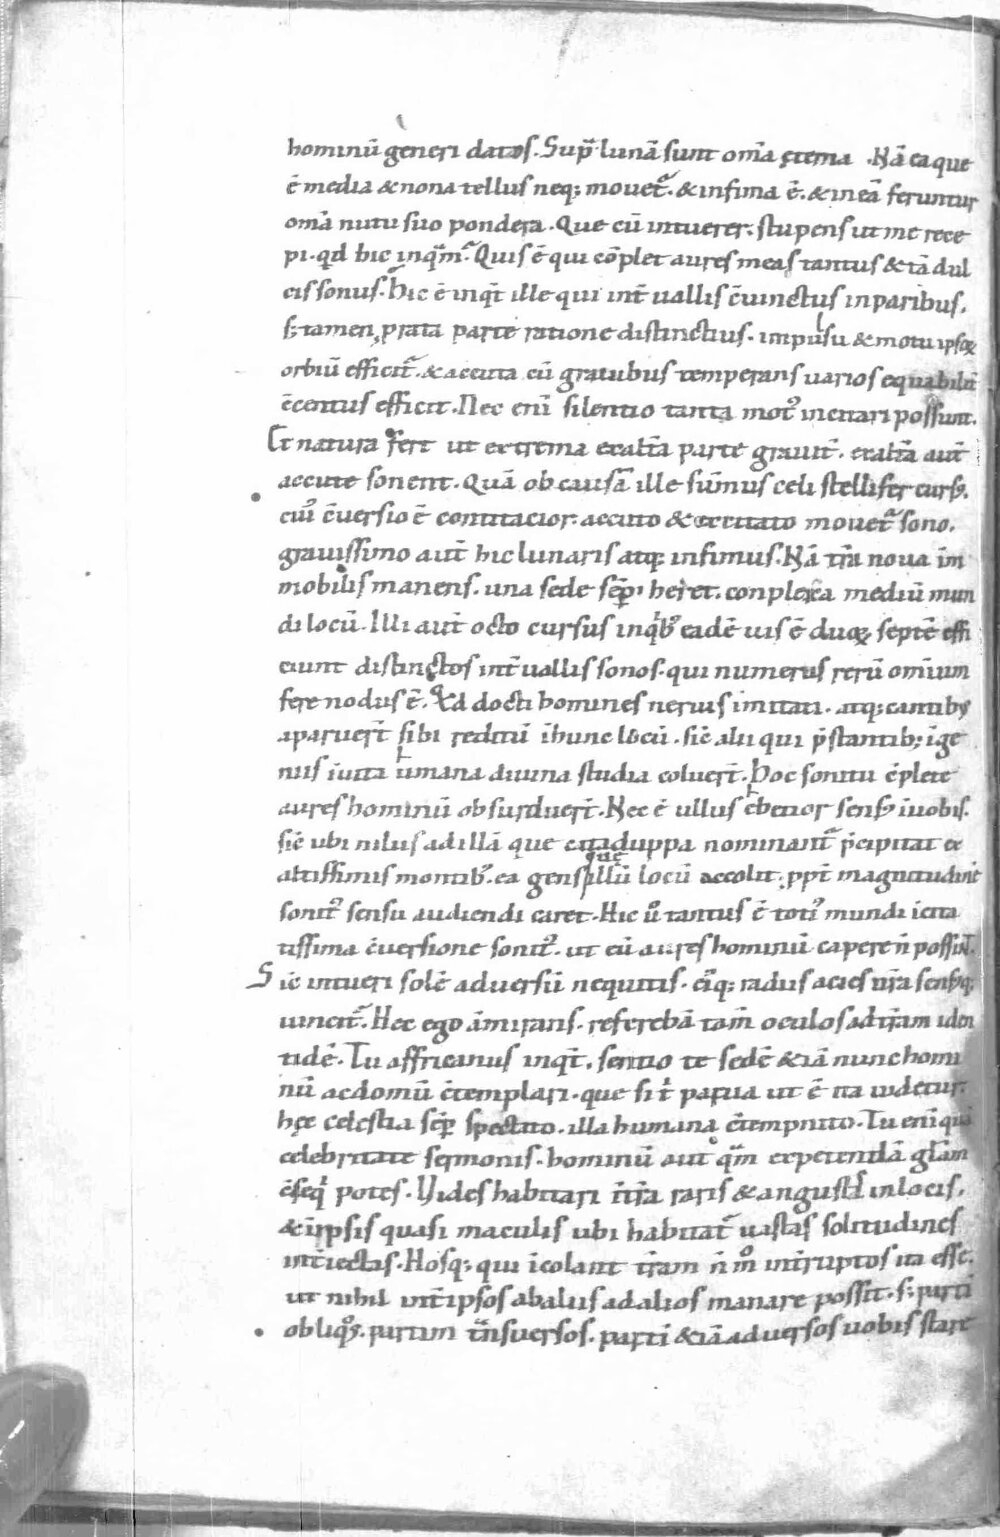 hominū generi datos. Supͣ lunā sunt om̄a ęterna. Nā ea que
ē media & nona tellus neq; mouet᷑. & infima ē. & in eā feruntur
om̄a nutu suo pondera. Que cū intuerer. stupens ut me rece
pi. qd hic inqͣm. Quis ē qui cōplet aures meas tantus & tā dul
cis sonus. Hic ē inqt̄ ille qui int̄uallis c̄iunctus inparibus.
s; tamen p rata parte ratione distinctius. impulsu & motu ipsoꝝ
orbiū efficit᷑. & accuta cū grauibus temperans uarios equabilit̄
c̄centus efficit. Nec enī silentio tanta motꝰ incitari possunt.
Et natura fert ut extrema exalt̄a parte grauit̄. exalt̄a aut̄
accute sonent. Quā ob causā ille sūmus celi stellifer cursꝰ.
cuiꝰ c̄uersio ē contitacior. accuto & excitato mouet᷑ sono.
grauissimo aut̄ hic lunaris atq; infimus. Nā tr̄a noua im̄
mobilis manens. una sede sēp heret. conplexa mediū mun
di locū. Illi aut̄ octo cursus inqͥbꝰ eadē uis ē duoꝝ septē effi
ciunt distinctos int̄uallis sonos. qui numerus rerū om̄ium
fere nodus ē. Qd docti homines neruis imitati. atq; cantibꝰ
aparuert̄ sibi reditū ī hunc locū. sic̄ alii qui p̄stantib; īge
niis ī uita umana diuina studia coluert̄. Hoc sonitu c̄plete
aures hominū obsurduert̄. Nec ē ullus ebetior sensꝰ ī uobis.
sic̄ ubi nilus ad illā que cataduppa nominant᷑ p̄cipitat ex
altissimis montibꝰ. ea gens que illū locū accolit. ppt̄ magnitudinē
sonitꝰ sensu audiendi caret. Hic uͦ tantus ē totiꝰ mundi īcita
tissima c̄uersione sonitꝰ. ut eū aures hominū capere n̄ possint.
Sic̄ intueri solē aduersū nequitis. eiꝰq; radiis acies nr̄a sensꝰq;
uincit᷑. Hec ego am̄irans. referebā tam̄ oculos ad tr̄am iden
tidē. Tu affricanus inqt̄. sentio te sedē & iā nunc homi
nū ac domū c̄templari. que si tͥ parua ut ē ita uidetur.
hęc celestia sēp spectato. illa humana c̄tempnito. Tu enī quā
celebritate sermonis. hominū aut qͣm expetendā gl̄am
c̄seqͥ potes. Vides habitari ī tr̄a raris & angustis in locis.
& ī ipsis quasi maculis ubi habitat᷑ uastas solitudines
int̄iectas. Hosq; qui īcolant tr̄am n̄ mͦ int̄ruptos ita esse.
ut nihil int̄ ipsos ab aliis ad alios manare possit. s; parti
obliqꝰs. partim tͣnsuersos. parti & iā aduersos uobis stare